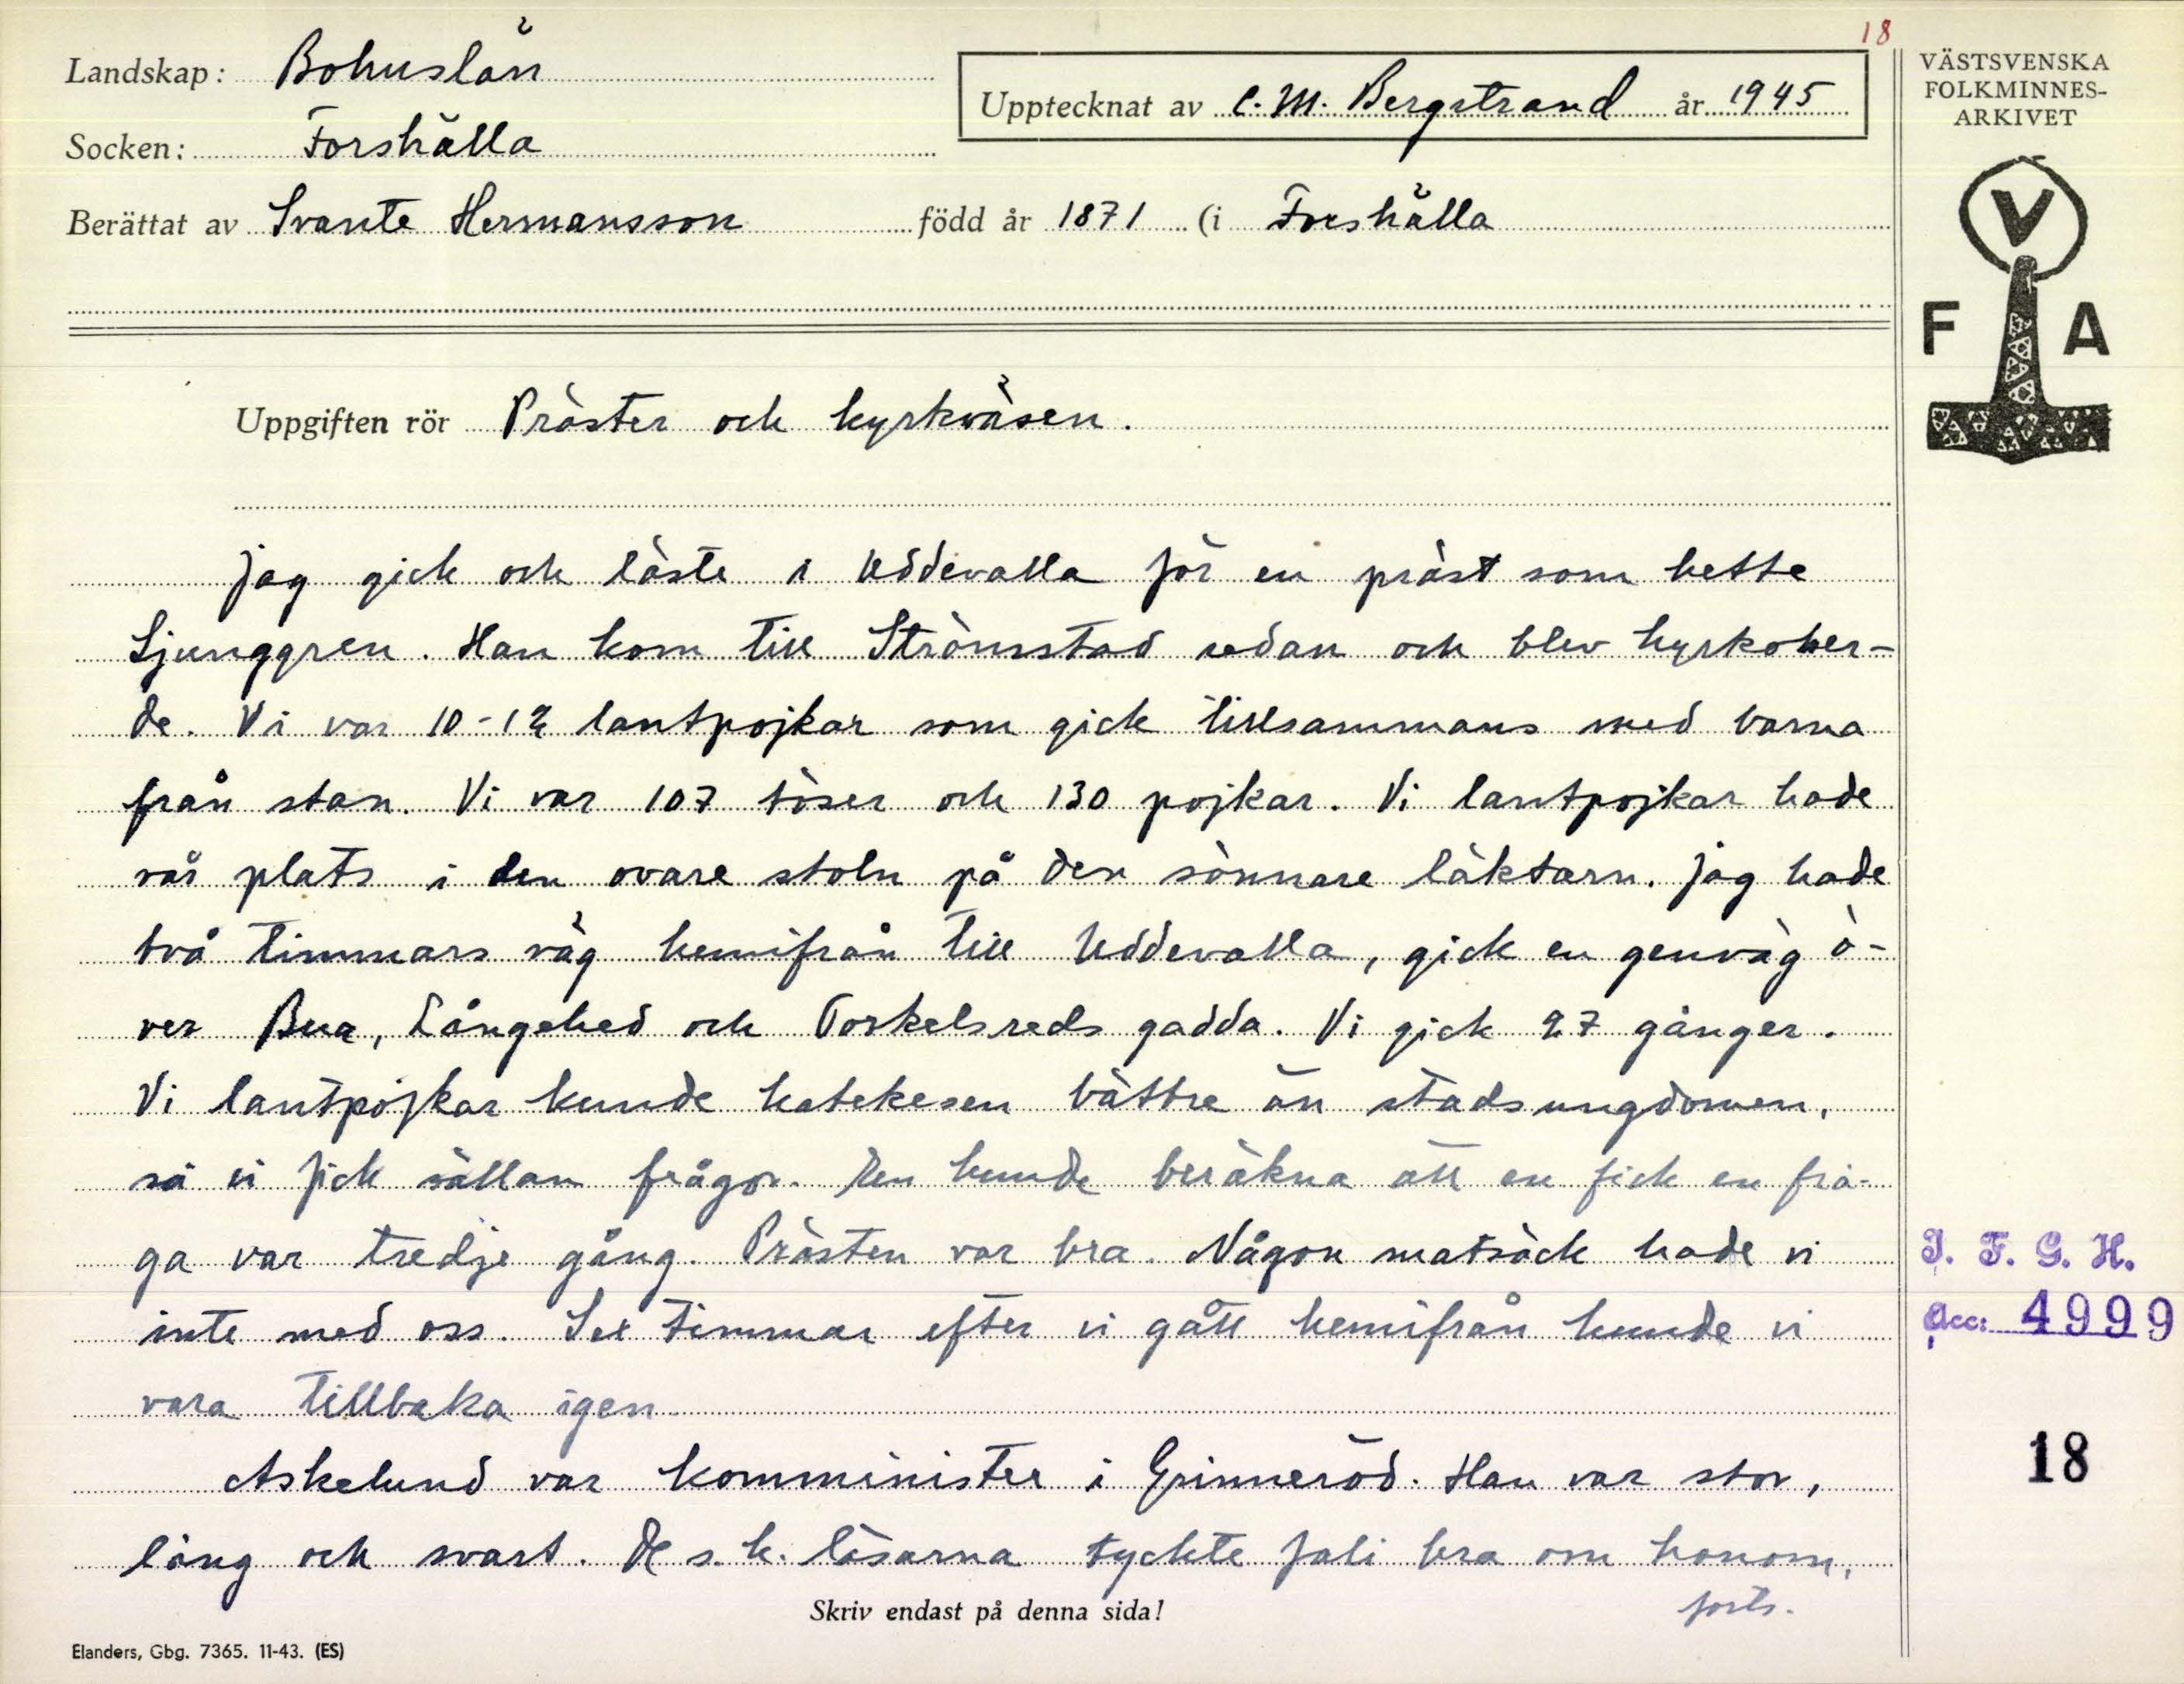 18
Landskap: Bohuslän
Upptecknat av C. M. Bergstrand år 1945
VÄSTSVENSKA
FOLKMINNES-
ARKIVET
Socken: Forshälla
Berättat av Svante Hermansson född år 1871 (i Forshälla
V
F A
Uppgiften rör Präster och kyrkväsen.
Jag gick och läste i Uddevalla för en präst som hette
Ljunggren. Han kom till Strömstad sedan och blev kyrkoher-
de. Vi var 10-12 lantpojkar som gick tillsammans med barna
från stan. Vi var 107 töser och 130 pojkar. Vi lantpojkar hade
vår plats i den ovare stoln på den sönnare läktarn. Jag hade
två timmars väg hemifrån till Uddevalla, gick en genväg ö-
ver Bua, Långehed och Torkelsreds gadda. Vi gick 27 gånger.
Vi lantpojkar kunde katekesen bättre än stadsungdomen,
så vi fick sällan frågor. En kunde beräkna att en fick en frå-
ga var tredje gång. Prästen var bra. Någon matsäck hade vi
inte med oss. Sex timmar efter vi gått hemifrån kunde vi
vara tillbaka igen
Askelund var komminister i Grinneröd. Han var stor,
lång och svart. De s. k. läsarna tyckte fali bra om honom,
forts.
Skriv endast på denna sida!
Elanders, Gbg. 7365. 11-43. (ES)
I. F. G. H.
Acc: 4999
18